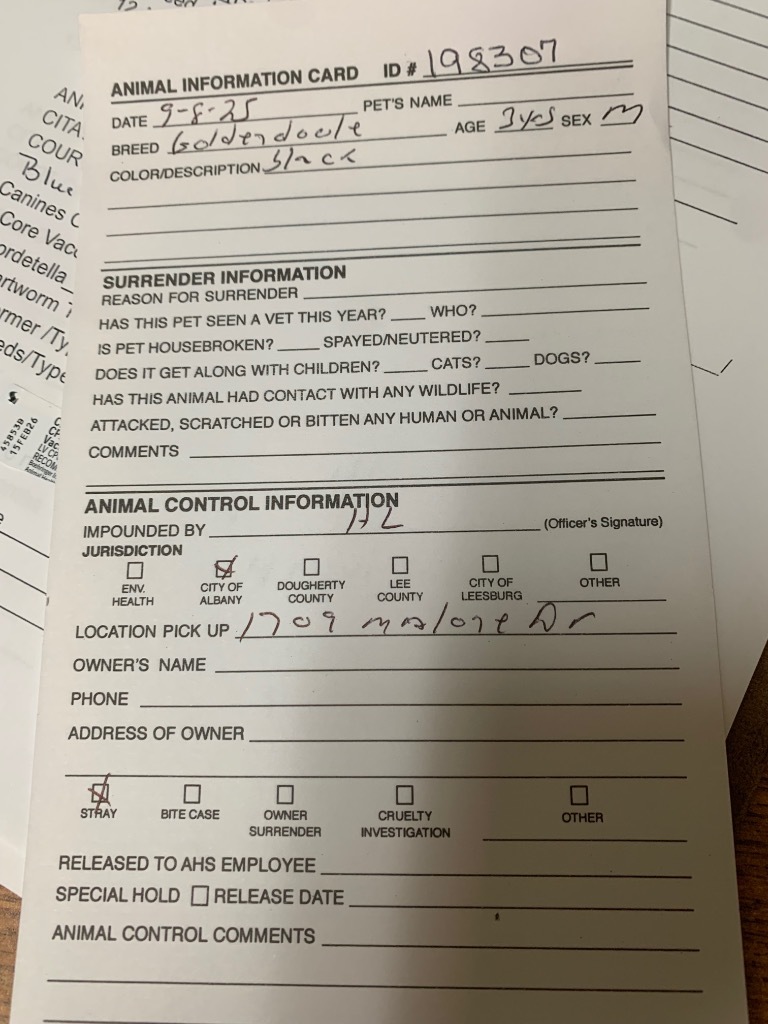 ANIMAL INFORMATION CARD ID # 198307
DATE 9-8-25 PET'S NAME
BREED Goldendoole AGE 3yrs SEX M
COLOR/DESCRIPTION black
SURRENDER INFORMATION
REASON FOR SURRENDER
HAS THIS PET SEEN A VET THIS YEAR? WHO?
IS PET HOUSEBROKEN? SPAYED/NEUTERED?
DOES IT GET ALONG WITH CHILDREN? CATS? DOGS?
HAS THIS ANIMAL HAD CONTACT WITH ANY WILDLIFE?
ATTACKED, SCRATCHED OR BITTEN ANY HUMAN OR ANIMAL?
COMMENTS
ANIMAL CONTROL INFORMATION
IMPOUNDED BY (Officer's Signature)
JURISDICTION
ENV. HEALTH CITY OF ALBANY DOUGHERTY COUNTY LEE COUNTY CITY OF LEESBURG OTHER
LOCATION PICK UP 1709 malone Dr
OWNER'S NAME
PHONE
ADDRESS OF OWNER
STRAY BITE CASE OWNER SURRENDER CRUELTY INVESTIGATION OTHER
RELEASED TO AHS EMPLOYEE
SPECIAL HOLD RELEASE DATE
ANIMAL CONTROL COMMENTS
Blue
Canines
Core Vac
458530
15FEB26